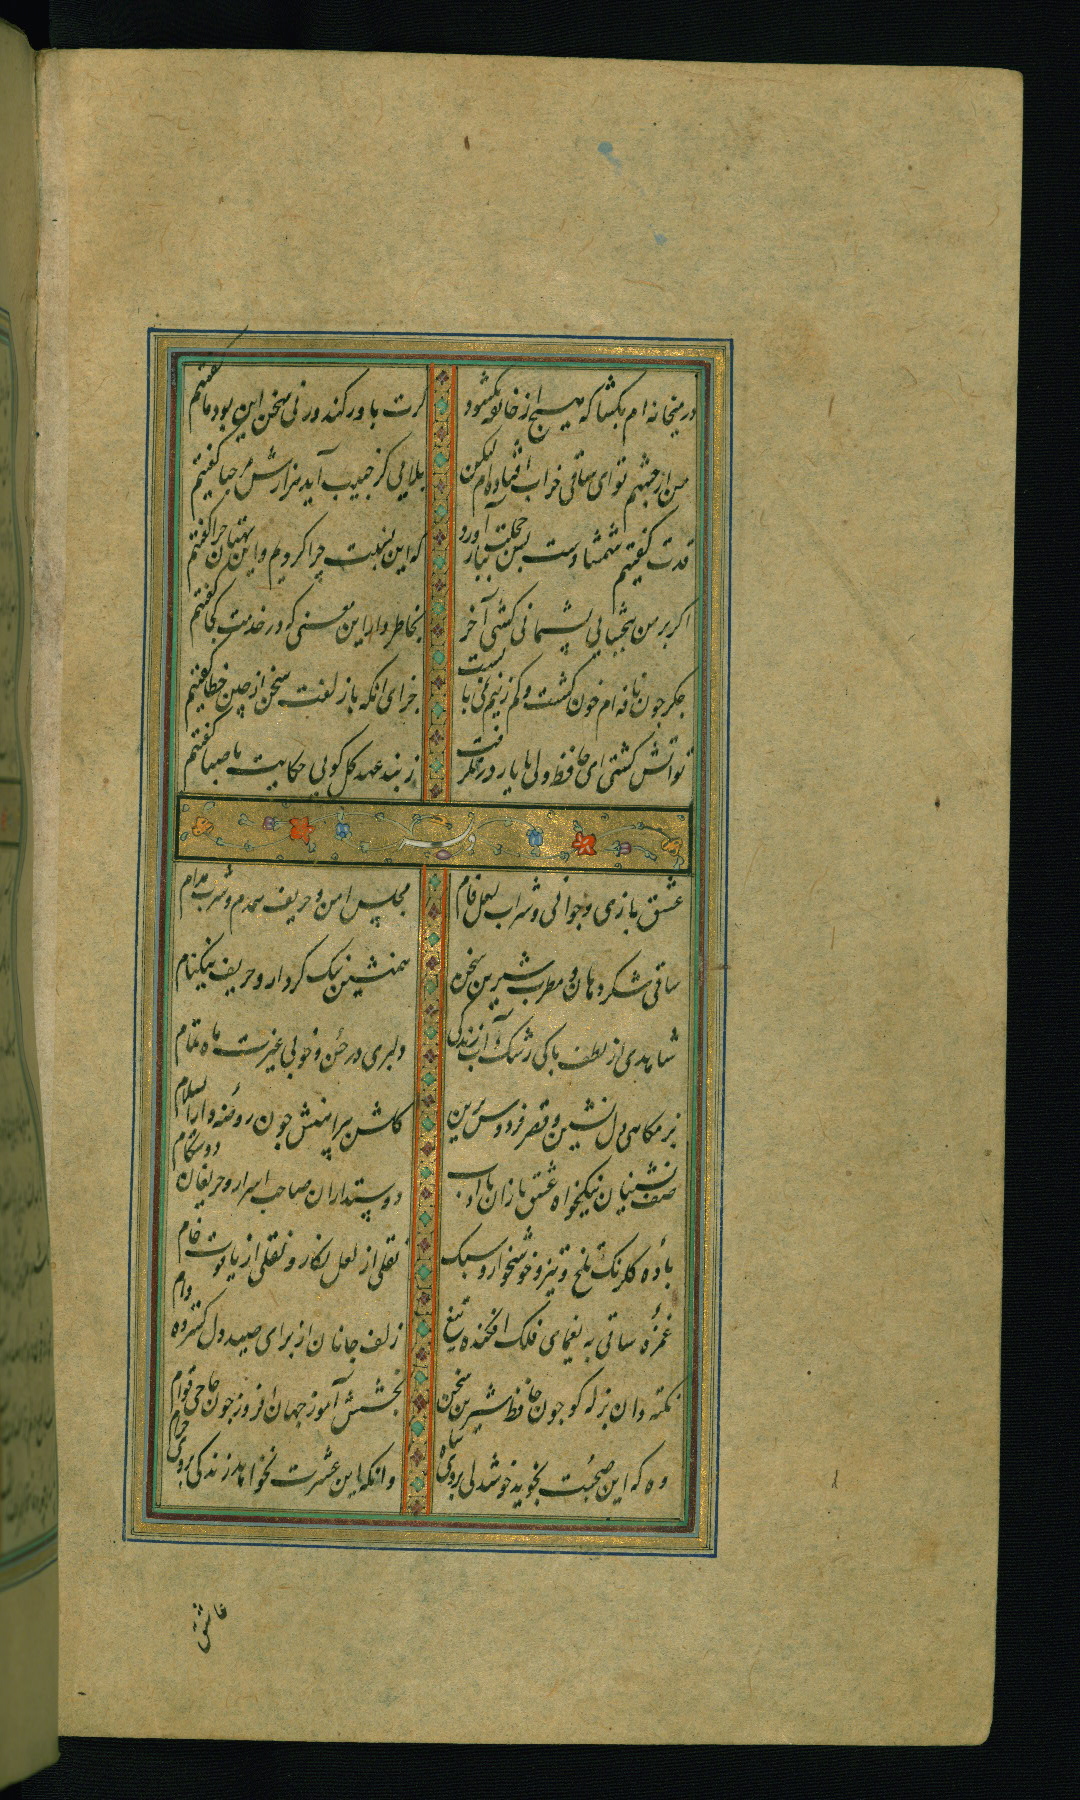 در میخانه ام بکشا که هیچ از خانقه نکشود کرت باور کند ورنی سخن این بود ما کفتیم
من از چشم تو ای ساقی خراب افتاده ام لیکن بلایی کز حبیب آید هزارش مرحبا کفتیم
قدت کفتیم شمشادست بس خجلت ببار آورد که این نسبت چرا کردیم و این بهتان چرا کفتیم
اکر بر من نبخشایی پشیمانی کشی آخر بخاطر دار این معنی که در خدمت کجا کفتیم
جکر چون نافه ام خون کشت و کم زینم نمی بایست جزای انکه با زلفت سخن از چین خطا کفتیم
تو آتش کشتی ای حافظ ولی با یار در نکرفت ز بند عهد کل کویی حکایت با صبا کفتیم
عشق بازی و جوانی و شراب لعل فام مجلس امن و حریف همدم و شرب مدام
ساقی شکر دهان و مطرب شیرین سخن همنشین نیک کردار و حریف نیکنام
شاهدی از لطف پاکی رشک آب زندکی دلبری در حسن و خوبی غیرت ماه تمام
بزمکاهی دل نشین و قصر فردوس برین کلشن پیرامنش چون روضه دار السلام
صف نشینان نیکخواه عشق بازان با ادب دوستداران صاحب اسرار و حریفان دوستکام
باده کلرنک تلخ و تیز و خوشخوار و سبک نقلی از لعل نکار و نقلی از یاقوت خام
غمزه ساقی به یغمای فلک افکنده تیغ زلف جانان از برای صید دل کسترده دام
نکته دان بزله کو چون حافظ شیرین سخن بخشش آموز جهان افروز چون حاجی قوام
وه که این صحبت بخوید خوشدلی بروی ساه وانکه این عشرت نخواهد زندکی بروی حرام
عاشق